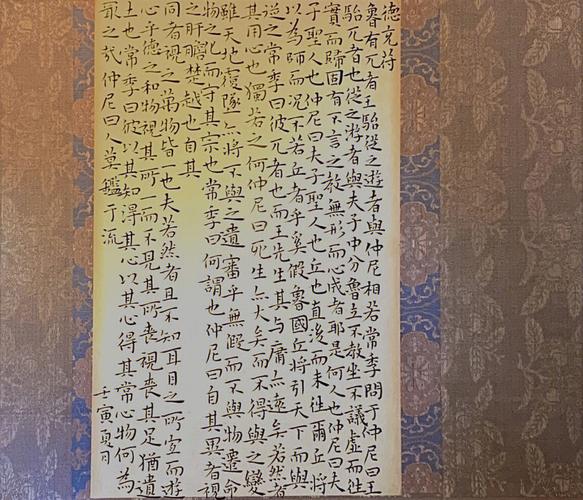 德充符
魯有兀者王駘從之遊者與仲尼相若常季問于仲尼曰王
駘兀者也從之游者與夫子中分魯立不教坐不議虛而往
實而歸固有不言之教無形而心成者耶是何人也仲尼曰夫
子聖人也仲尼曰夫子聖人也丘也直後而未往爾丘將
以為師而况不若丘者乎奚假魯國丘將引天下而與
從之常季曰彼兀者也而王先生其与庸亦遠矣若然者
其用心也獨若之何仲尼曰死生亦大矣而不得與之變
雖天地覆墜亦將不與之遺審乎無瑕而不與物遷命
物之化而守其宗也常季曰何謂也仲尼曰自其異者視
之肝膽楚越也自其
同者視之萬物皆一也夫若然者且不知耳目之所宜而遊
心乎德之和物視其所一而不見其所喪視喪其足猶遺
土也常季曰彼以其知得其心以其心得其常心物何為
最之哉仲尼曰人莫鑑于流
壬寅夏日